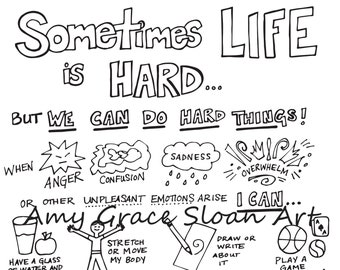 Sometimes LIFE
is HARD...
BUT WE CAN DO HARD THINGS!
WHEN ANGER CONFUSION SADNESS OVERWHELM
OR OTHER UNPLEASANT EMOTIONS ARISE I CAN...
Amy Grace Sloan Art
HAVE A GLASS
OF WATER AND
STRETCH
OR MOVE
MY BODY
DRAW OR
WRITE
ABOUT
IT
PLAY A
GAME